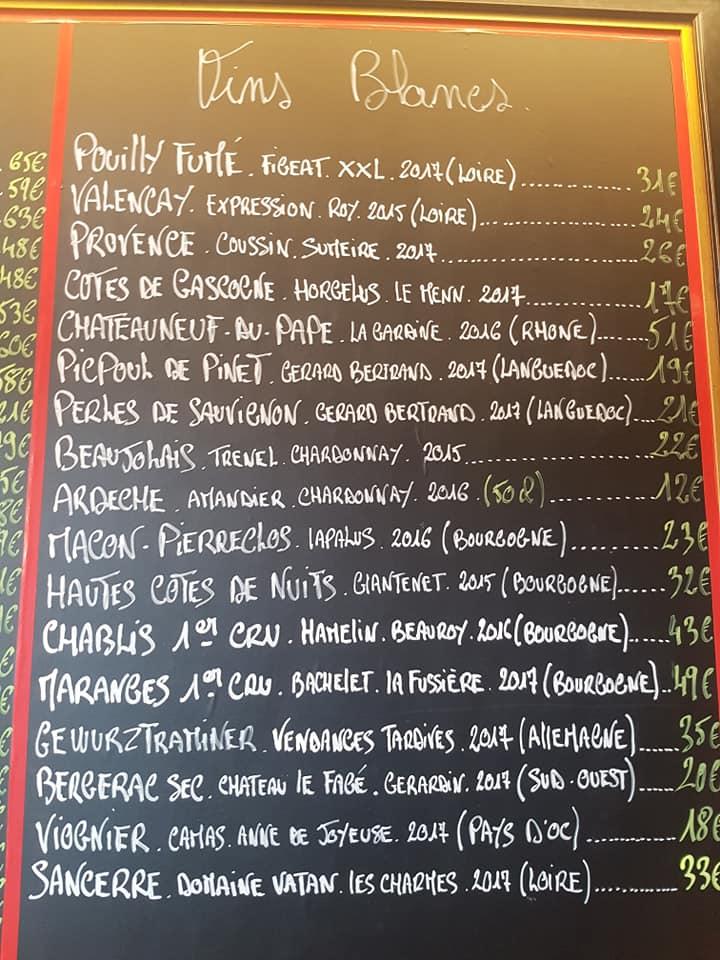 Vins Blancs.
POUILLY FUMÉ. FIGEAT. XXL. 2017 (LOIRE)............... 31€
VALENCAY. EXPRESSION. ROY. 2015 (LOIRE)............... 24€
PROVENCE. COUSSIN. SUMEIRE. 2017............... 26€
COTES DE GASCOGNE. HORGELUS. LE MENN. 2017............... 17€
CHATEAUNEUF-DU-PAPE. LA GARRINE. 2016 (RHONE)....... 51€
PICPOUL DE PINET. GERARD BERTRAND. 2017 (LANGUEDOC)...... 19€
PERLES DE SAUVIGNON. GERARD BERTRAND. 2017 (LANGUEDOC).... 21€
BEAUJOLAIS. TRENEL. CHARDONNAY. 2015............... 22€
ARDECHE. AMANDIER. CHARDONNAY. 2016. (50cl)............ 12€
MACON-PIERRECLOS. LAPALUS. 2016 (BOURGOGNE)......... 23€
HAUTES COTES DE NUITS. GIANTENET. 2015 (BOURGOGNE)...... 32€
CHABLIS 1er CRU. HAMELIN. BEAUROY. 2016 (BOURGOGNE)..... 43€
MARANGES 1er CRU. BACHELET. LA FUSSIÈRE. 2017 (BOURGOGNE).. 49€
GEWURZTRAMINER. VENDANGES TARDIVES. 2017 (ALLEMAGNE)...... 35€
BERGERAC SEC. CHATEAU LE FAGÉ. GERARDIN. 2017 (SUD-OUEST)..... 20€
VIOGNIER. CAMAS. ANNE DE JOYEUSE. 2017 (PAYS D'OC)............ 18€
SANCERRE. DOMAINE VATAN. LES CHARMES. 2017 (LOIRE)............ 33€
65€
59€
63€
48€
48€
53€